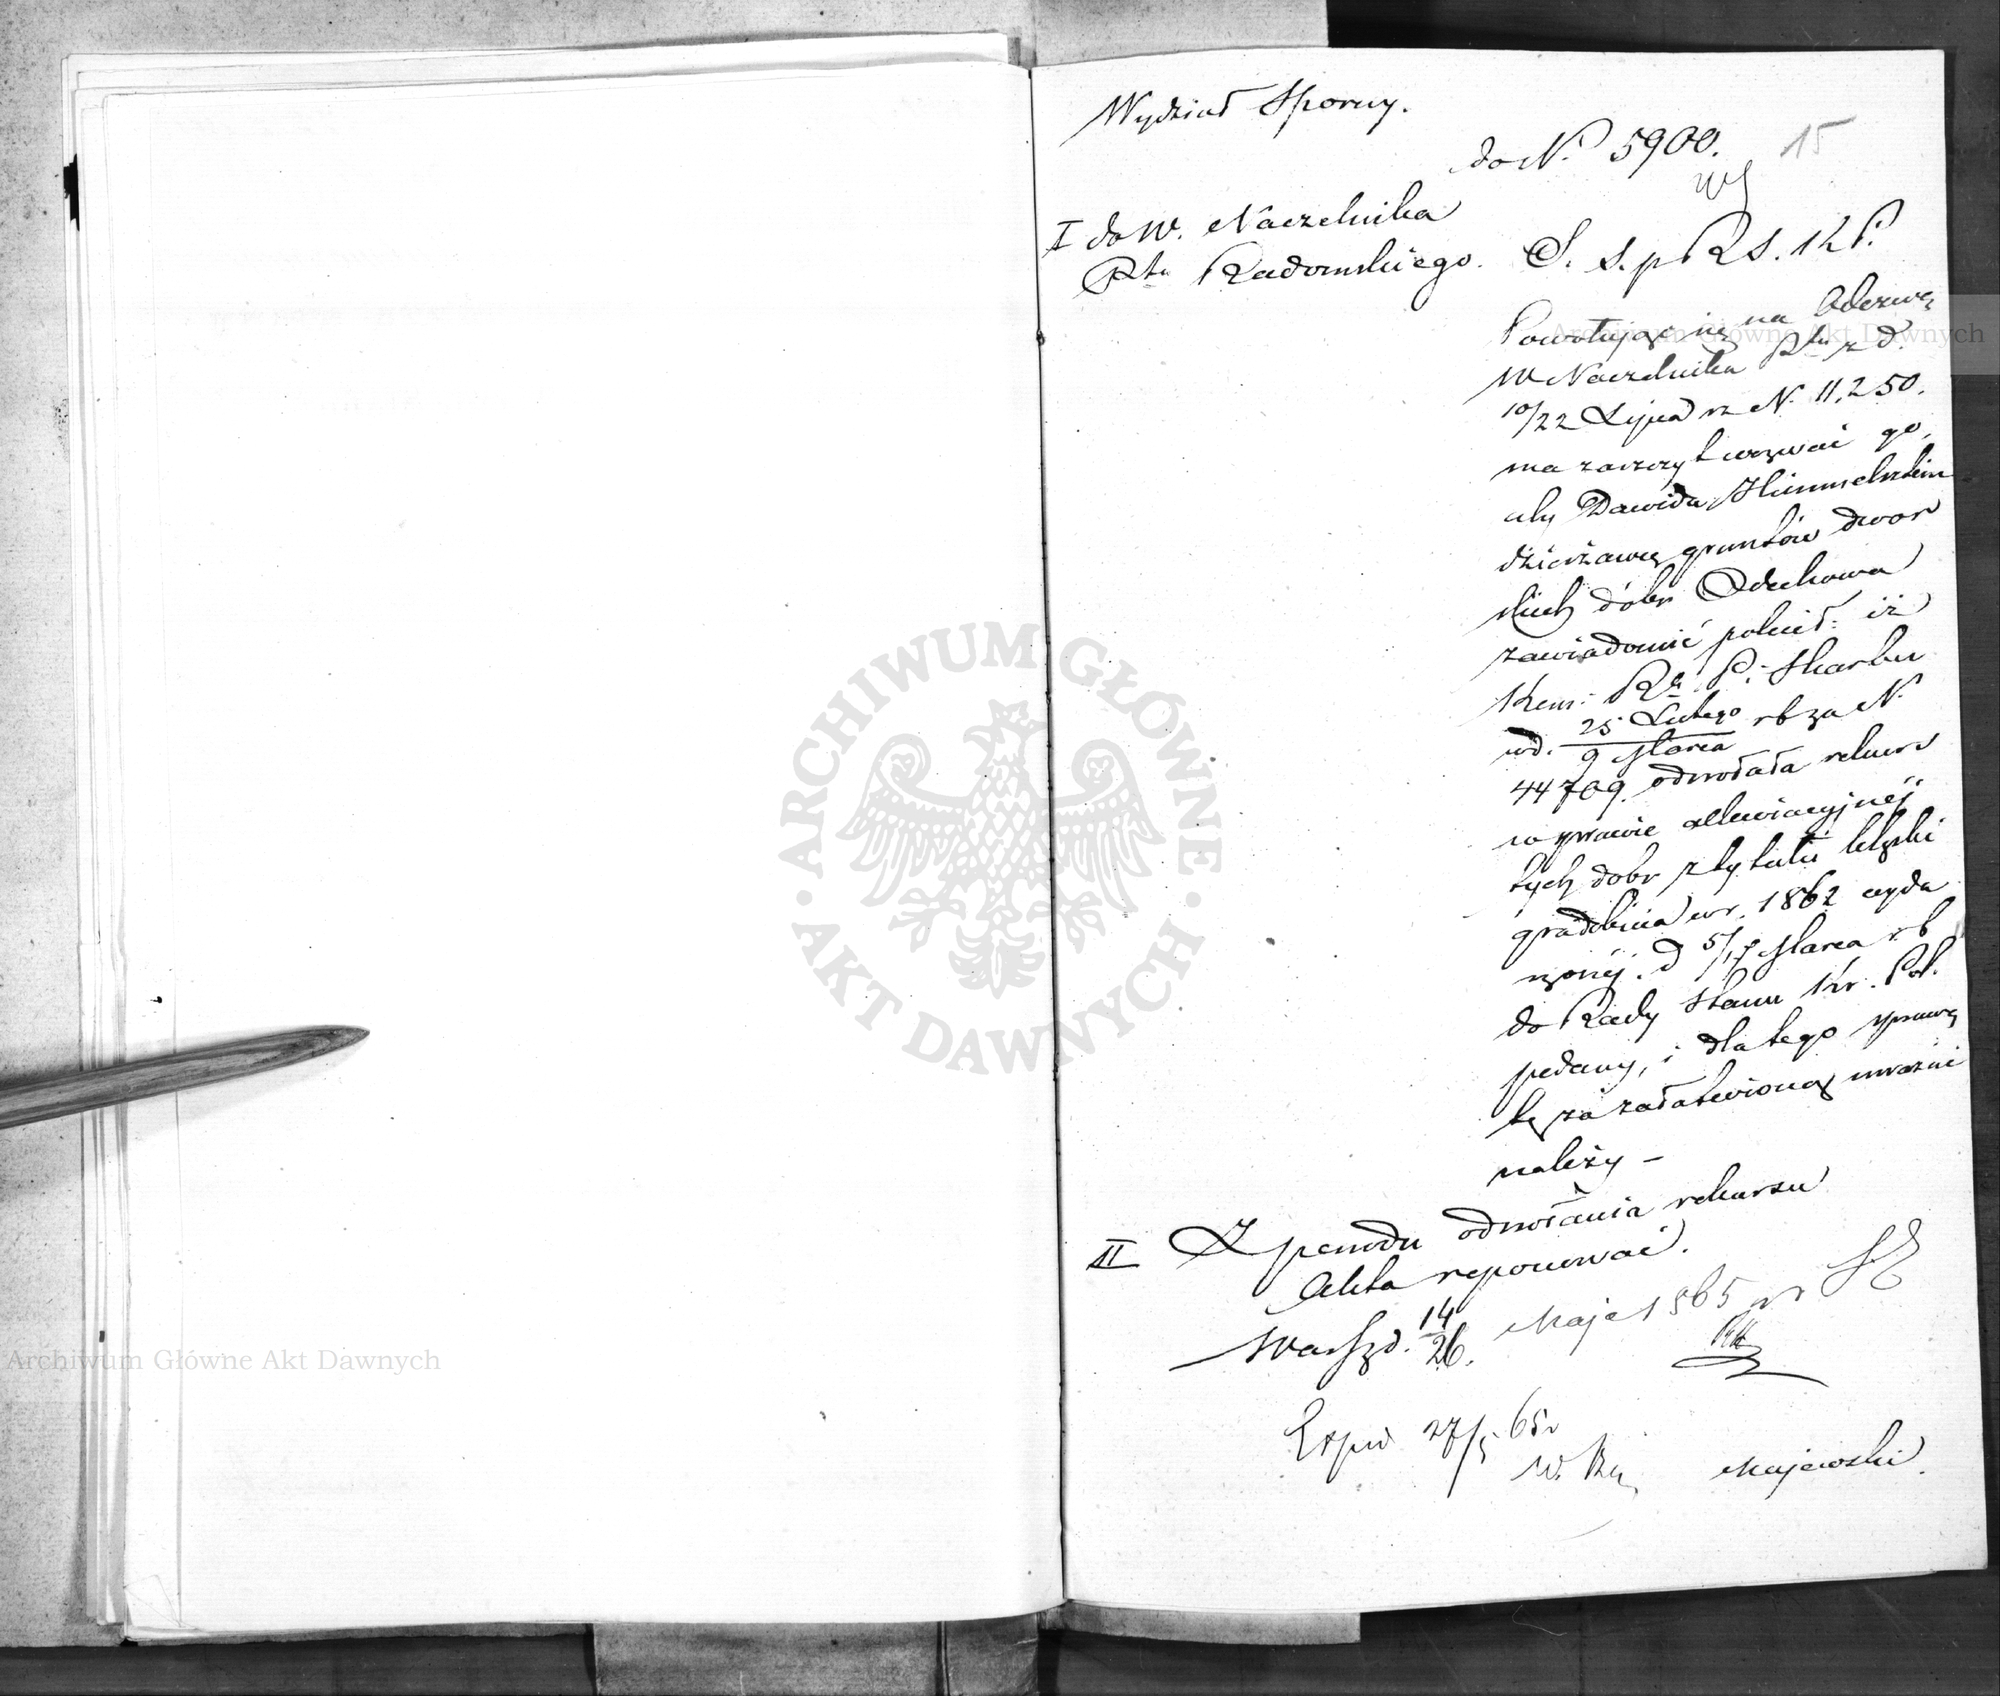 Wydział Sporny.
do N. 5900.
15
I do W. Naczelnika
Ptu Radomskiego.
S. s. p R S. K P.
Powołując się na Odezwę
W Naczelnika Ptu z d.
10/22 Lipca rz N. 11,250.
ma zaszczyt wezwać go,
aby Dawida Himmelsztein
dzierżawcę gruntów dwor
skich dóbr Odechowa
zawiadomić polecił: iż
Kom: Rz. P. Skarbu
w d. 25 Lutego / 9 Marca rb za N.
44709. odwołała rekurs
w sprawie allewiacyjnej
tych dobr z tytułu klęski
gradobicia w r. 1862 wyda
rzonéj. d 5/17 Marca r b
do Rady Stanu Kr. Pol.
podany, i dlatego sprawę
tę za załatwioną uważać
należy —
II Z powodu odwołania rekursu
Akta reponować.
Warsz d. 14/26. Maja 1865 r
Exped 27/5 65 r
Majewski.
ARCHIWUM GŁÓWNE
AKT DAWNYCH
Archiwum Główne Akt Dawnych
Archiwum Główne Akt Dawnych